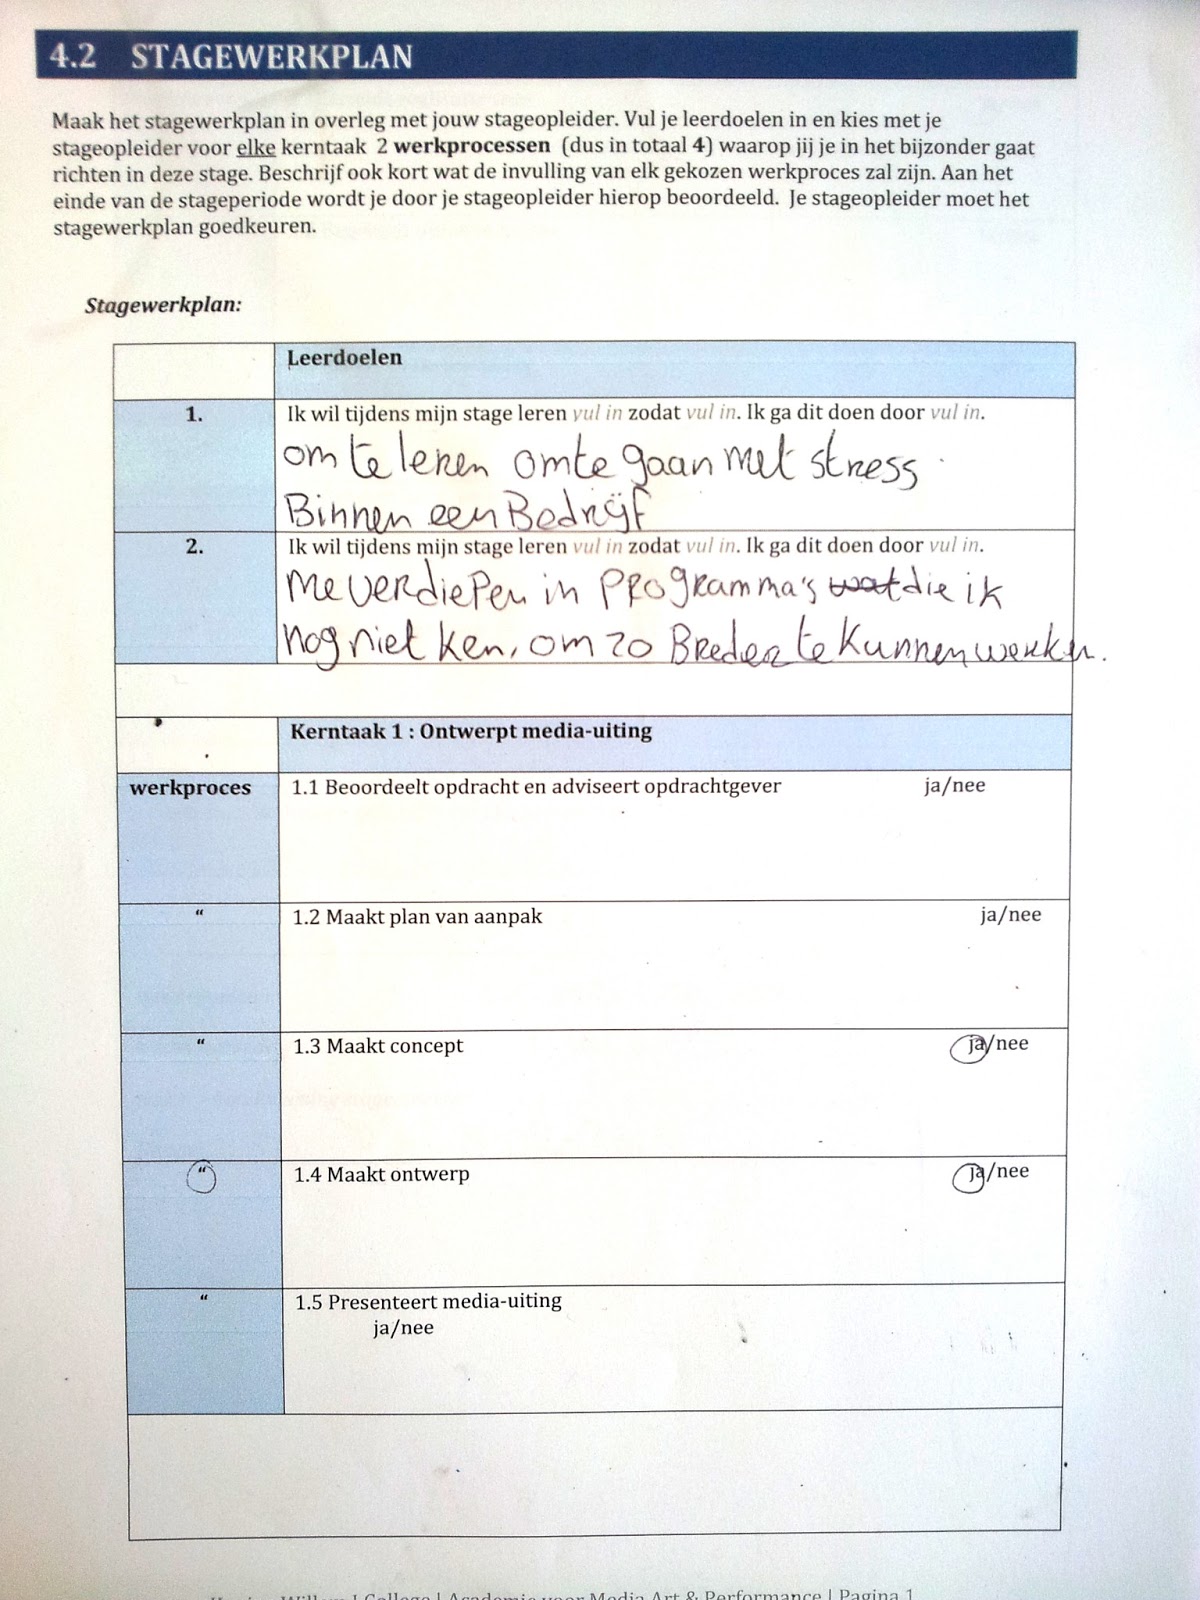 4.2 STAGEWERKPLAN
Maak het stagewerkplan in overleg met jouw stageopleider. Vul je leerdoelen in en kies met je
stageopleider voor elke kerntaak 2 werkprocessen (dus in totaal 4) waarop jij je in het bijzonder gaat
richten in deze stage. Beschrijf ook kort wat de invulling van elk gekozen werkproces zal zijn. Aan het
einde van de stageperiode wordt je door je stageopleider hierop beoordeeld. Je stageopleider moet het
stagewerkplan goedkeuren.
Stagewerkplan:
Leerdoelen
1. Ik wil tijdens mijn stage leren vul in zodat vul in. Ik ga dit doen door vul in.
om te leren omte gaan met stress
Binnen een Bedrijf
2. Ik wil tijdens mijn stage leren vul in zodat vul in. Ik ga dit doen door vul in.
me verdiepen in programma's wat die ik
nog niet ken, om zo Breder te kunnen werken.
Kerntaak 1 : Ontwerpt media-uiting
werkproces 1.1 Beoordeelt opdracht en adviseert opdrachtgever ja/nee
“ 1.2 Maakt plan van aanpak ja/nee
“ 1.3 Maakt concept ja/nee
“ 1.4 Maakt ontwerp ja/nee
“ 1.5 Presenteert media-uiting
ja/nee
Willem I College | Academie voor Media Art & Performance | Pagina 1